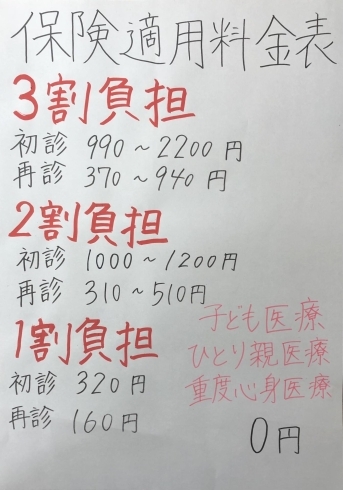 保険適用料金表
3割負担
初診 990～2200円
再診 370～940円
2割負担
初診 1000～1200円
再診 310～510円
1割負担
初診 320円
再診 160円
子ども医療
ひとり親医療
重度心身医療
0円